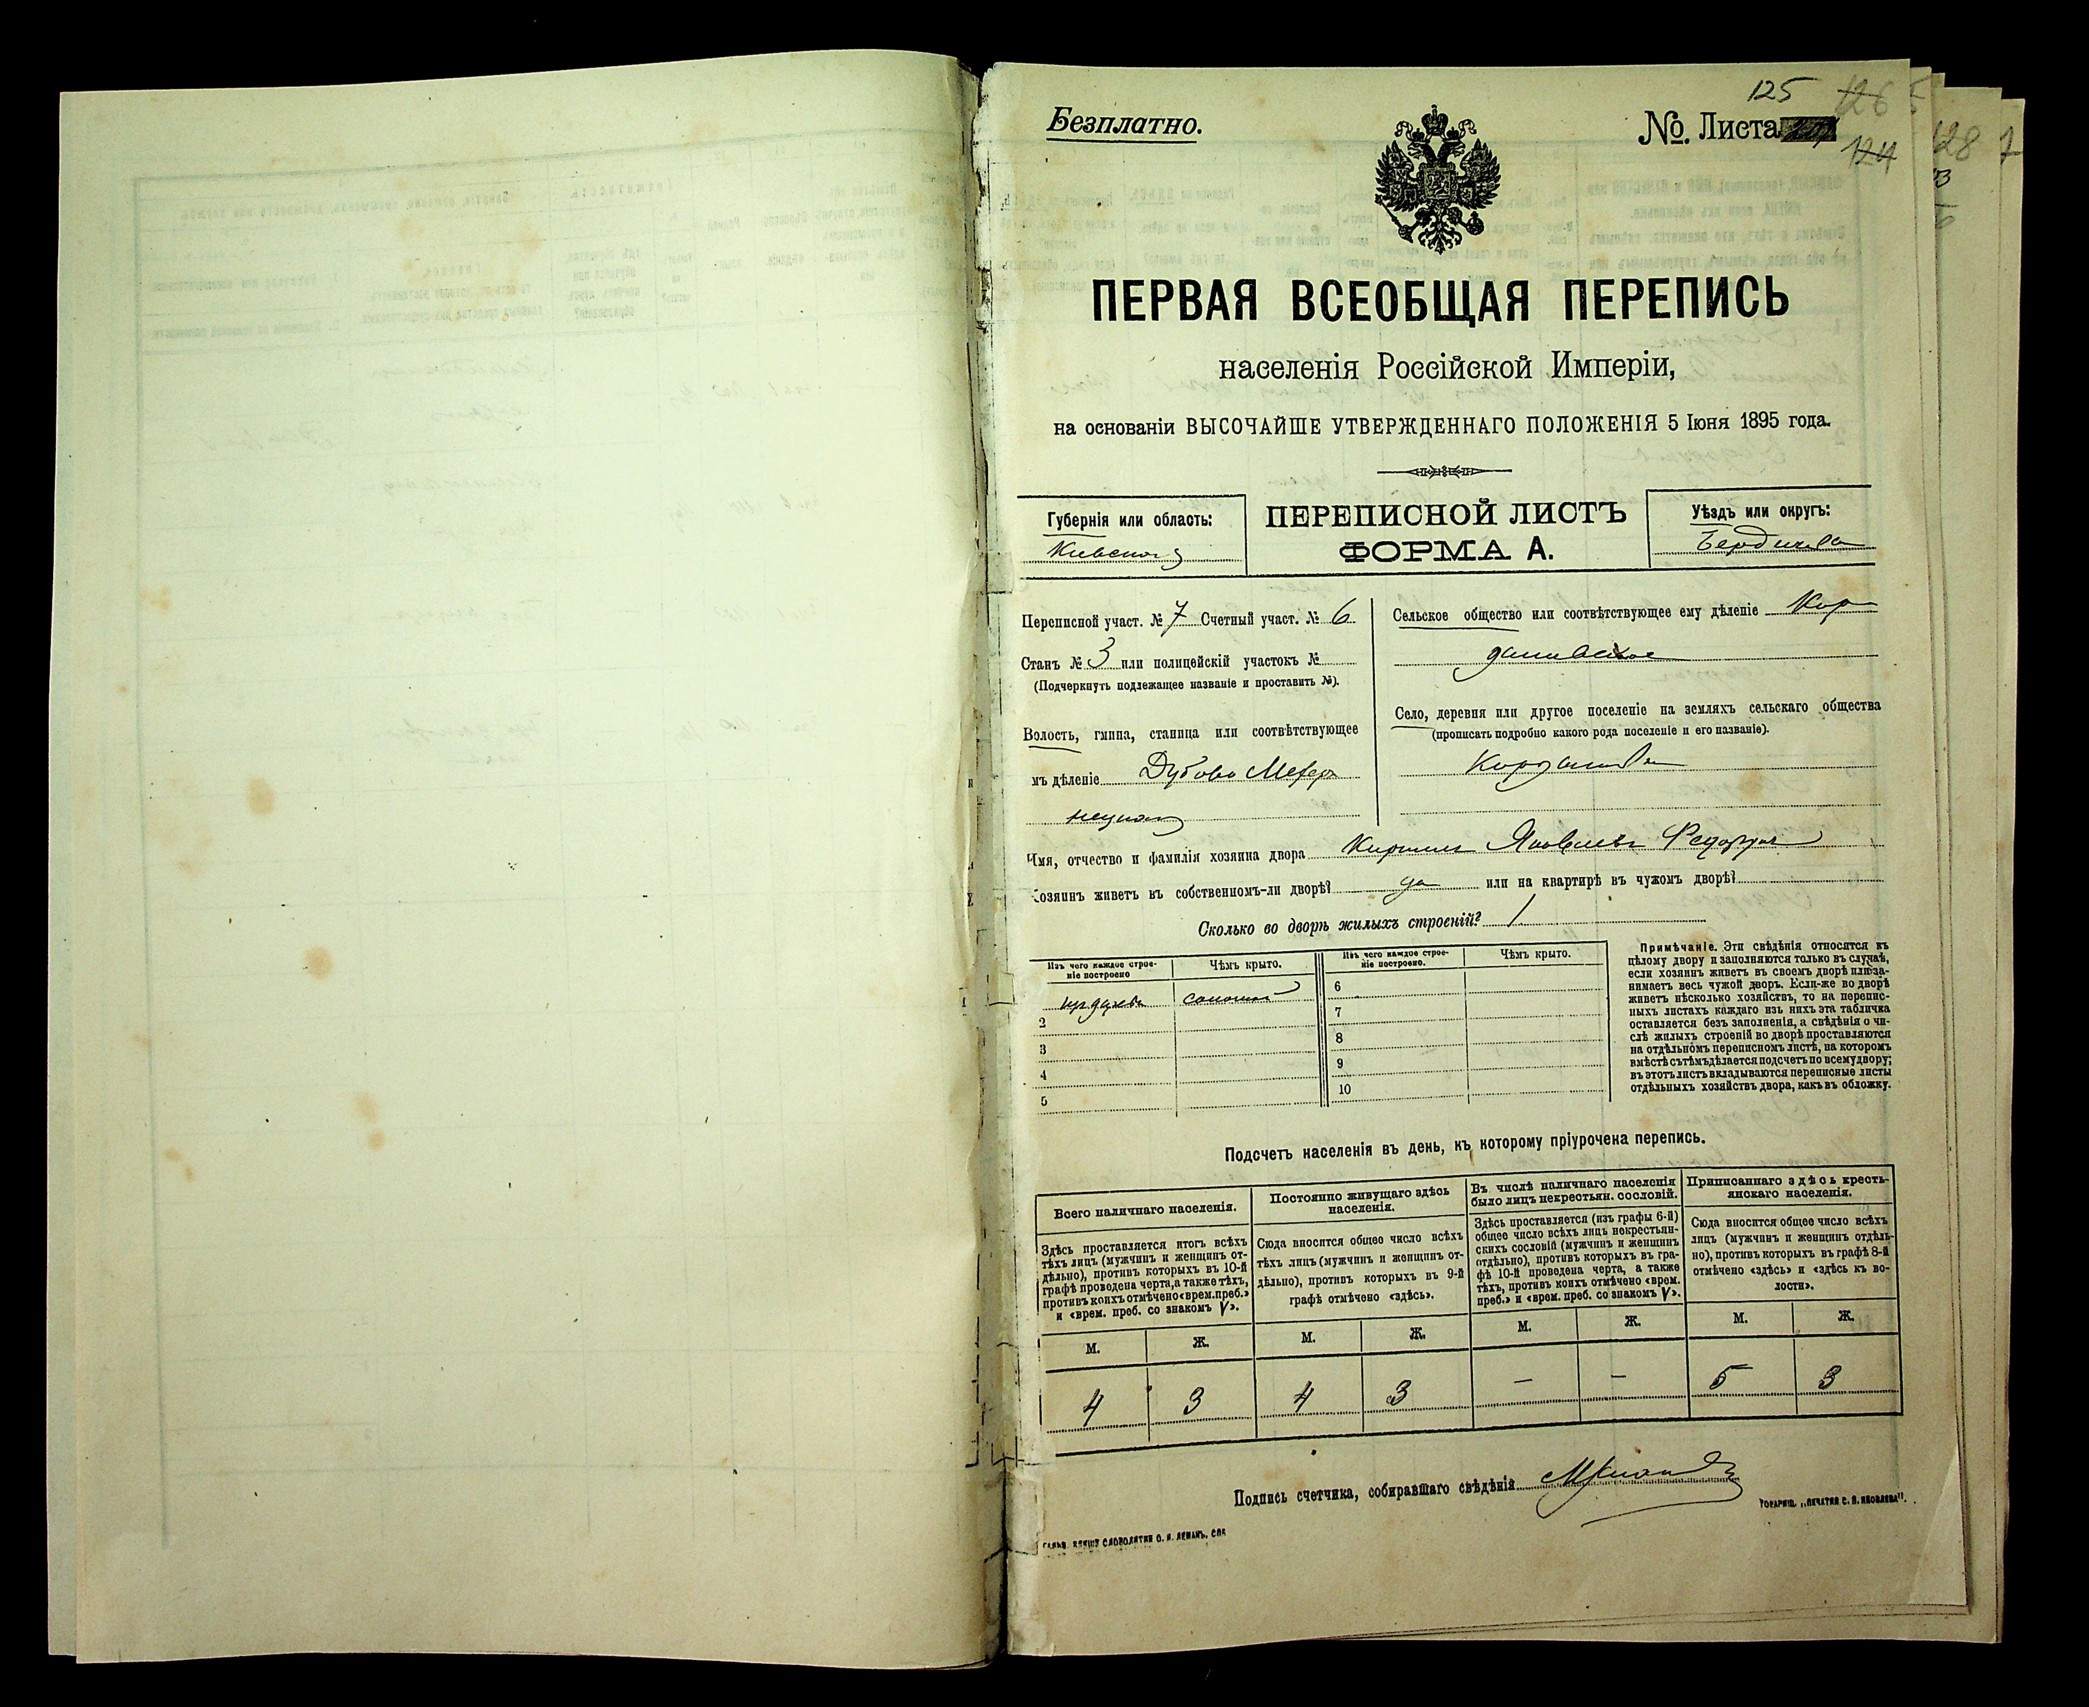 125 126
Безплатно.
№. Листа
124
128 7
ПЕРВАЯ ВСЕОБЩАЯ ПЕРЕПИСЬ
населенія Россійской Имперіи,
на основаніи ВЫСОЧАЙШЕ УТВЕРЖДЕННАГО ПОЛОЖЕНІЯ 5 Іюня 1895 года.
Губернія или область:
Кіевской
ПЕРЕПИСНОЙ ЛИСТЪ
ФОРМА А.
Уѣздъ или округъ:
Бердичева
Переписной участ. № 7 Счетный участ. № 6
Станъ № 3 или полицейскій участокъ №
(Подчеркнуть подлежащее названіе и проставить №).
Волость, гмина, станица или соотвѣтствующее
мъ дѣленіе Дубово Махар
нецкая
Сельское общество или соотвѣтствующее ему дѣленіе Кор
дышивское
Село, деревня или другое поселеніе на земляхъ сельскаго общества
(прописать подробно какого рода поселеніе и его названіе).
Кордышивка
Имя, отчество и фамилія хозяина двора Яковлевъ Федорук
хозяинъ живетъ въ собственномъ-ли дворѣ? да или на квартирѣ въ чужомъ дворѣ?
Сколько во дворѣ жилыхъ строеній? 1
Изъ чего каждое строе-
ніе построено
Чѣмъ крыто.
соломой
2
3
4
5
Изъ чего каждое строе-
ніе построено.
Чѣмъ крыто.
6
7
8
9
10
Примѣчаніе. Эти свѣдѣнія относятся къ
цѣлому двору и заполняются только въ случаѣ,
если хозяинъ живетъ въ своемъ дворѣ или за-
нимаетъ весь чужой дворъ. Если-же во дворѣ
живетъ нѣсколько хозяйствъ, то на перепис-
ныхъ листахъ каждаго изъ нихъ эта табличка
оставляется безъ заполненія, а свѣдѣнія о чи-
слѣ жилыхъ строеній во дворѣ проставляются
на отдѣльномъ переписномъ листѣ, на которомъ
вмѣстѣ съ тѣмъ дѣлается подсчетъ по всему двору;
въ этотъ листъ вкладываются переписные листы
отдѣльныхъ хозяйствъ двора, какъ въ обложку.
Подсчетъ населенія въ день, къ которому пріурочена перепись.
Всего наличнаго населенія.
Здѣсь проставляется итогъ всѣхъ
тѣхъ лицъ (мужчинъ и женщинъ от-
дѣльно), противъ которыхъ въ 10-й
графѣ проведена черта, а также тѣхъ,
противъ коихъ отмѣчено «врем. преб.»
и «врем. преб. со знакомъ V».
М. Ж.
4 3
Постоянно живущаго здѣсь
населенія.
Сюда вносится общее число всѣхъ
тѣхъ лицъ (мужчинъ и женщинъ от-
дѣльно), противъ которыхъ въ 9-й
графѣ отмѣчено «здѣсь».
М. Ж.
4 3
Въ числѣ наличнаго населенія
было лицъ некрестьян. сословій.
Здѣсь проставляется (изъ графы 6-й)
общее число всѣхъ лицъ некрестьян-
скихъ сословій (мужчинъ и женщинъ
отдѣльно), противъ которыхъ въ гра-
фѣ 10-й проведена черта, а также
тѣхъ, противъ коихъ отмѣчено «врем.
преб.» и «врем. преб. со знакомъ V».
М. Ж.
— —
Приписаннаго здѣсь кресть-
янскаго населенія.
Сюда вносится общее число всѣхъ
лицъ (мужчинъ и женщинъ отдѣль-
но), противъ которыхъ въ графѣ 8-й
отмѣчено «здѣсь» и «здѣсь къ во-
лости».
М. Ж.
5 3
Подпись счетчика, собиравшаго свѣдѣнія
Товарищ. „Печатня С. П. Яковлева".
Гальв. клише Словолитни О. И. Леманъ, СПБ